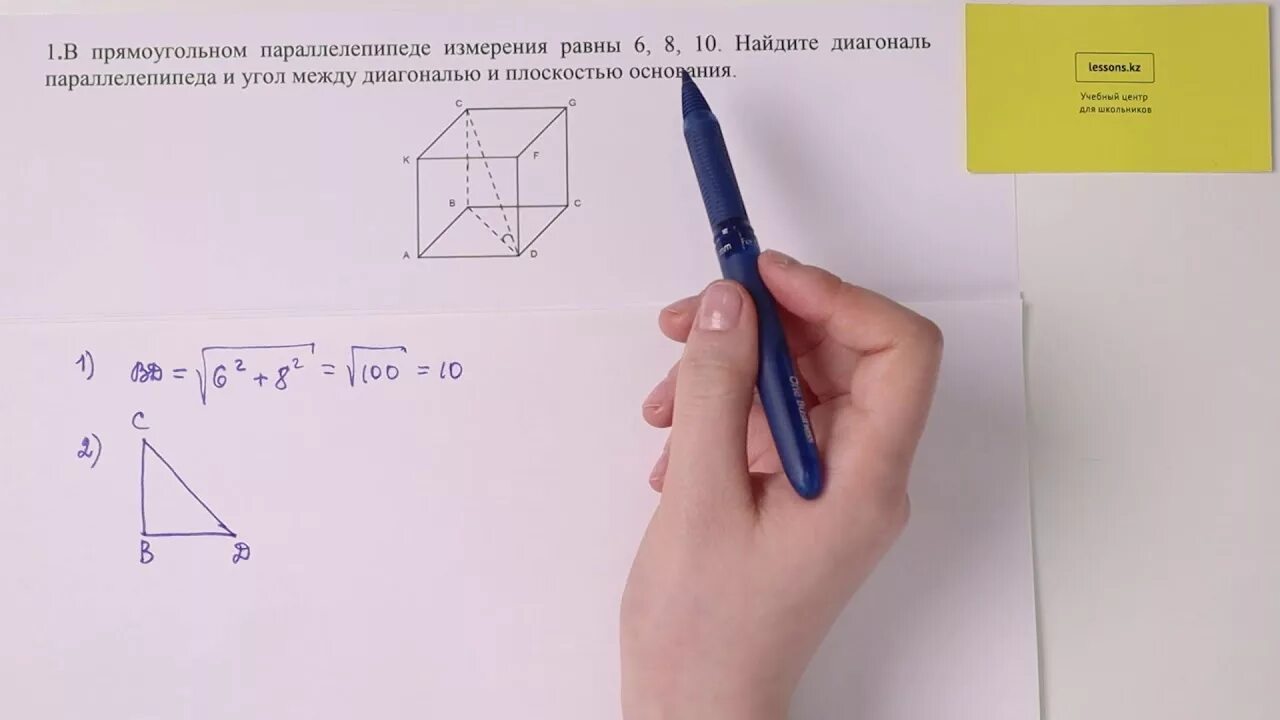 1.В прямоугольном параллелепипеде измерения равны 6, 8, 10. Найдите диагональ
параллелепипеда и угол между диагональю и плоскостью основания.
lessons.kz
Учебный центр
для школьников
C G
K F
B C
A D
1) BD = √6² + 8² = √100 = 10
2) C
B D
One business